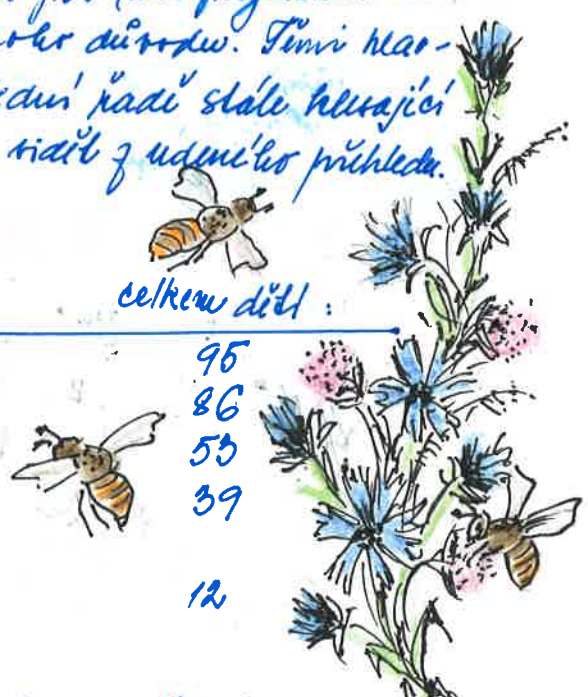 důvodu. Těmi hlav-
řadě stále klesající
vidět z udeného přehledu.
celkem dětí :
95
86
53
39
12